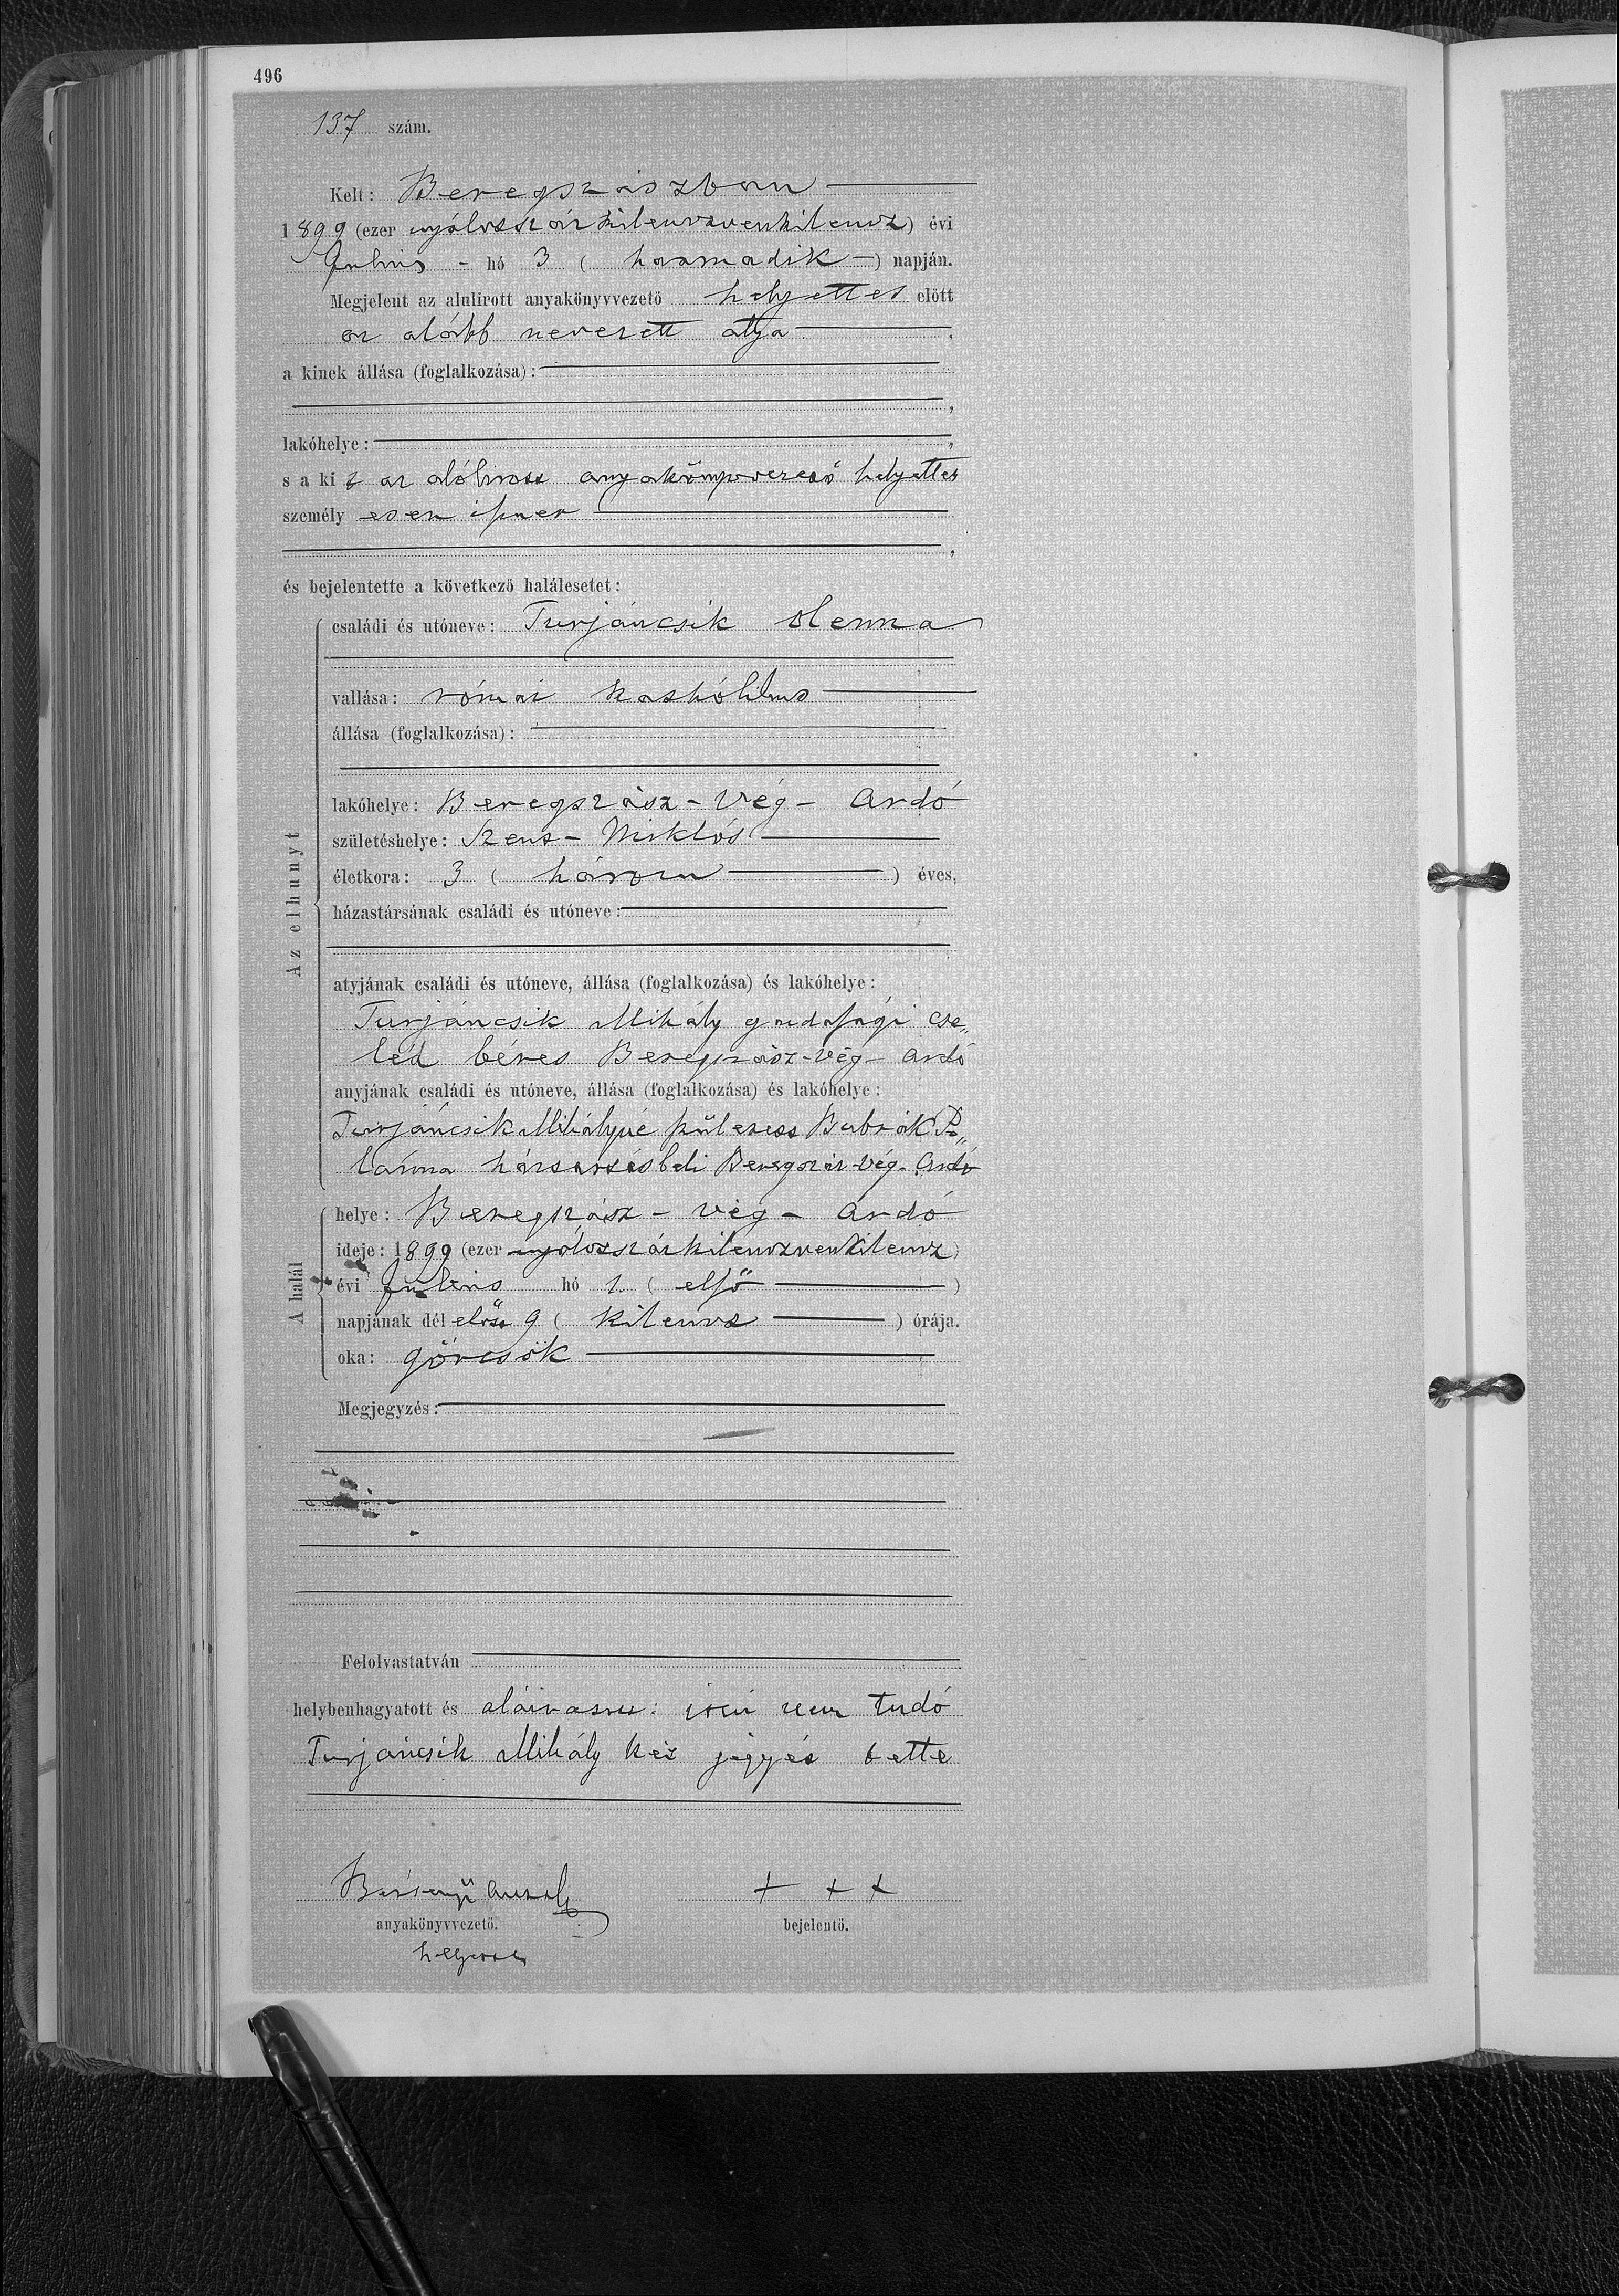 496
137 szám.
Kelt: Beregszászban
1899 (ezer nyolcszázkilenczvenkilencz) évi
Julius - hó 3 ( harmadik -) napján.
Megjelent az alulirott anyakönyvvezető helyettes előtt
az alább nevezett atya ,
a kinek állása (foglalkozása):
,
lakóhelye: ,
s a ki t az alólirott anyakönyvvezető helyettes
személy esen ismer
,
és bejelentette a következő halálesetet:
Az elhunyt
családi és utóneve: Turjáncsik Olenna
vallása: római katholikus
állása (foglalkozása):
lakóhelye: Beregszász - Vég - Ardó
születéshelye: Szent - Miklós
életkora: 3 ( három ) éves,
házastársának családi és utóneve:
atyjának családi és utóneve, állása (foglalkozása) és lakóhelye:
Turjáncsik Mihály gazdasági cse„
léd béres Beregszász-Vég-Ardó
anyjának családi és utóneve, állása (foglalkozása) és lakóhelye:
Turjáncsik Mihályné született Bubrák
háztartásbeli Beregszász-Vég-Ardó
A halál
helye: Beregszász - Vég - Ardó
ideje: 1899 (ezer nyolcszázkilenczvenkilencz)
évi Julius hó 1. ( első )
napjának dél előtt 9 ( kilencz ) órája.
oka: görcsök
Megjegyzés:
Felolvastatván
helybenhagyatott és aláiratott: irni nem tudó
Turjáncsik Mihály kéz jegyét tette
+ + +
anyakönyvvezető. bejelentő.
helyettes